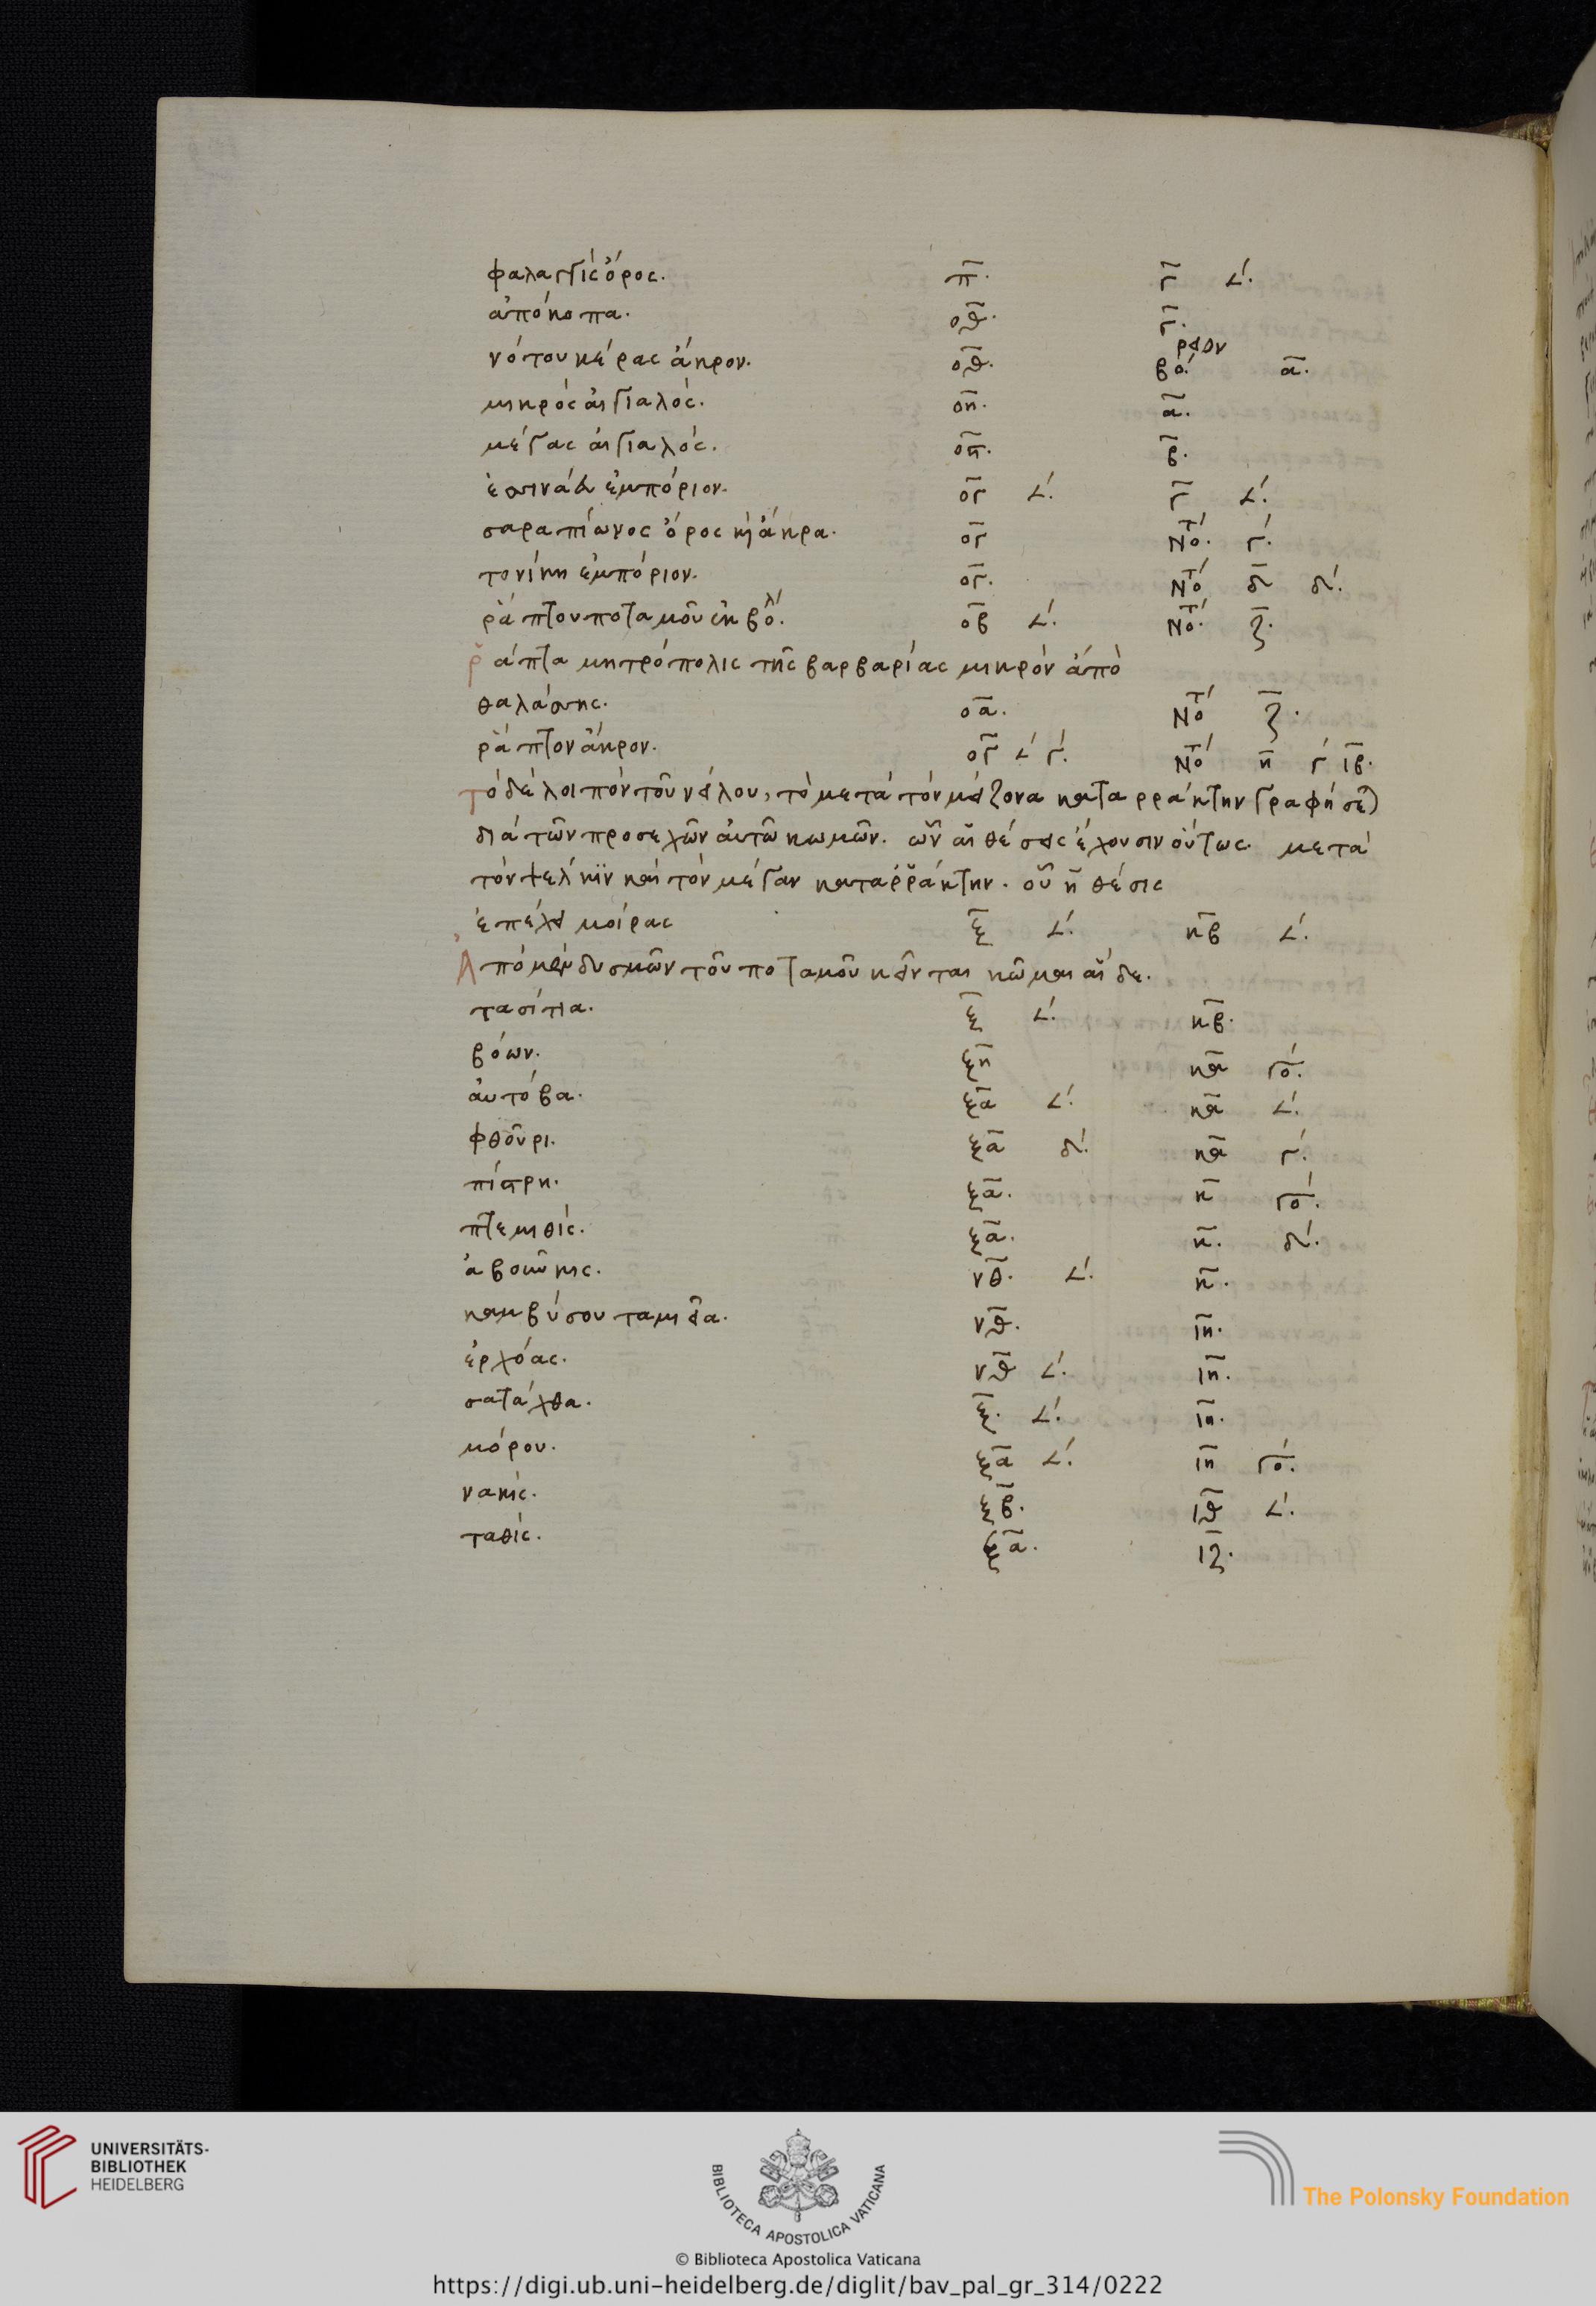 φαλαγγὶς ὄρος. π̅. γ̅ 𐅵.
ἀπόκοπα. οθ̅. γ̅.
νότου κέρας ἄκρον. οθ̅. βο. ρειον α̅.
μικρὸς αἰγιαλός. οη̅. α̅.
μέγας αἰγιαλός. οη̅. β̅.
ἐσσινὰ ἐμπόριον. ογ̅ 𐅵. γ̅ 𐅵.
σαραπίωνος ὅρος κὶ ἄκρα. ογ̅ Νο τ́. γ́.
τονίκη ἐμπόριον. ογ̅. Νο τ́ δ̅ δ́.
ῥάπτου ποταμοῦ ἐκβολ́. οβ̅ 𐅵. Νο τ́. ζ̅.
ῥάπτα μητρόπολις τῆς βαρβαρίας μικρὸν ἀπὸ
θαλάσσης. οα̅. Νο τ́ ζ̅.
ῥάπτον ἄκρον. ογ̅ 𐅵 γ́. Νο τ́ η̅ γ́ ιβ̅.
τὸ δὲ λοιπὸν τοῦ νείλου, τὸ μετὰ τὸν μείζονα καταρράκτην γραφήσε)
διὰ τῶν προσεχῶν αὐτῶ κωμῶν. ὧν αἱ θέσεις ἔχουσιν οὕτως. μετὰ
τὸν ψελκὶν καὶ τὸν μέγαν καταῤῥάκτην. οὗ ἡ θέσις
ἐπέχει μοίρας ξ̅ 𐅵. κβ̅ 𐅵.
Ἀπὸ μὲν δυσμῶν τοῦ ποταμοῦ κεῖνται κῶμαι αἵδε.
τασίτια. ξ̅ 𐅵. κβ̅.
βόων. ξη̅ κα̅ γό.
αὐτόβα. ξα̅ 𐅵. κα̅ 𐅵.
φθοῦρι. ξα̅ δ́. κα̅ γ́.
πίστρη. ξα̅. κ̅ γό.
πτεμιθίς. ξα̅. κ̅. δ́.
ἀβουῦκις. νθ̅. 𐅵. κ̅.
καμβύσου ταμιεῖα. νθ̅. ιη̅.
ἐρχόας. νθ̅ 𐅵. ιη̅.
σατάχθα. ξ̅. 𐅵. ιη̅.
μόρου. ξα̅ 𐅵. ιη̅ γό.
νακίς. ξβ̅. ιθ̅ 𐅵.
ταθίς. ξα̅. ιζ̅.
UNIVERSITÄTS-
BIBLIOTHEK
HEIDELBERG
BIBLIOTECA APOSTOLICA VATICANA
The Polonsky Foundation
© Biblioteca Apostolica Vaticana
https://digi.ub.uni-heidelberg.de/diglit/bav_pal_gr_314/0222